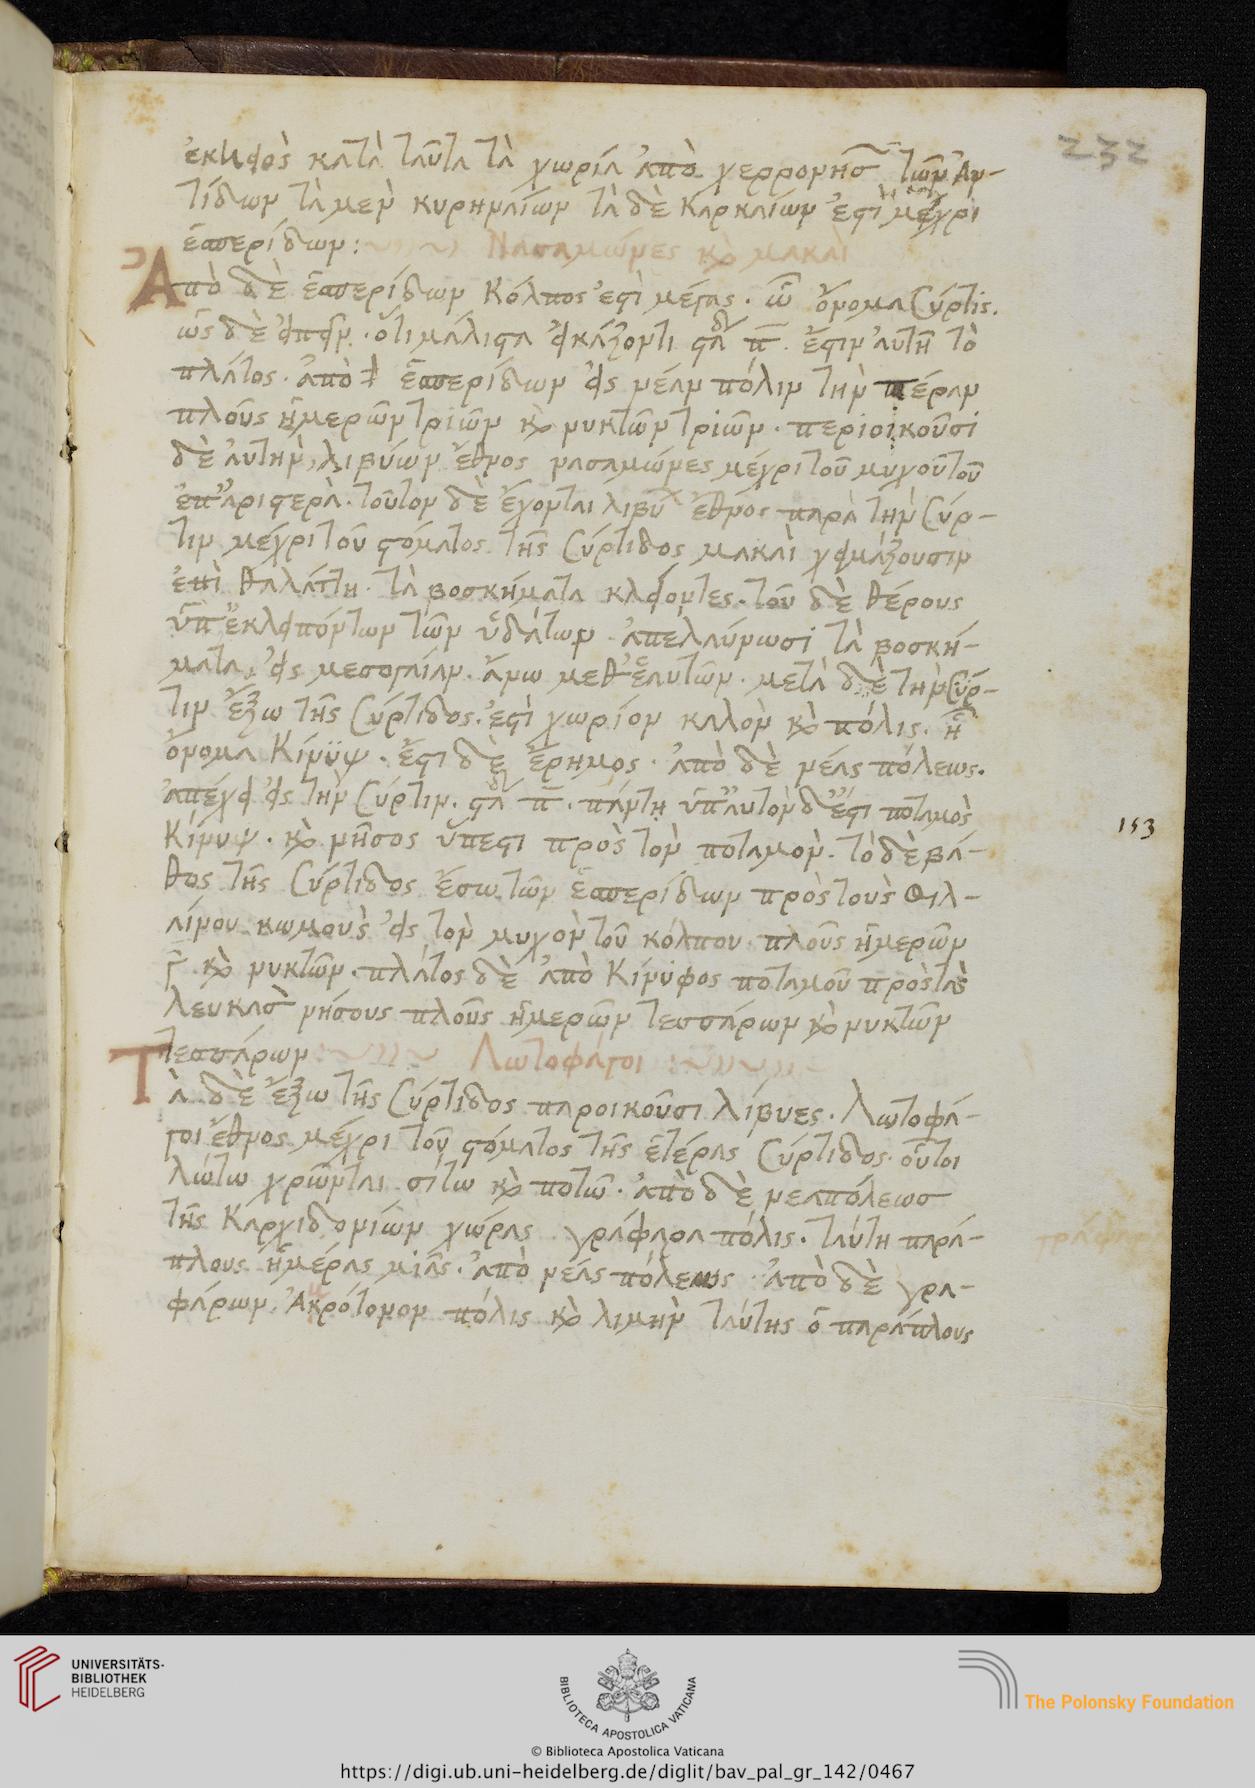 232
ἐκειφρὸς κατὰ ταῦτα τὰ χωρία ἀπὸ χερρονησ τῶν Ἀν-
τίδων τὰ μεν κυρηναίων τὰ δὲ Καρκαίων ἐστὶ μέχρι
ἑσπερίδων: Νασαμώνες καὶ μακαὶ
Ἀπὸ δὲ ἑσπερίδων Κόλπος ἐστὶ μέγας. ὧ ὄνομα Σύρτις.
ὡς δὲ εἰπεῖν. ὅτι μάλιστα εἰκάζοντι σταδ π. ἔστιν αὐτῆ τὸ
πλάτος. ἀπὸ δὲ ἑσπερίδων εἰς νέαν πόλιν τὴν πέραν
πλοῦς ἡμερῶν τριῶν καὶ νυκτῶν τριῶν. περιοικοῦσι
δὲ αὐτὴν, λιβύων ἔθνος νασαμώνες μέχρι τοῦ μυχοῦ τοῦ
ἐπ' ἀριστερὰ. τοῦτον δὲ ἔχονται λιβυ ἔθνος παρὰ τὴν Σύρ-
τιν μέχρι τοῦ στόματος τῆς Σύρτιδος μακαὶ χειμάζουσιν
ἐπὶ θαλάττη. τὰ βοσκήματα κλείοντες. τοῦ δὲ θέρους
ὑπ' ἐκλειπόντων τῶν ὑδάτων. ἀπελαύνωσι τὰ βοσκή-
ματα, εἰς μεσογαίαν. ἄνω μεθ' ἑαυτῶν. μετὰ δὲ τὴν Σύρ-
τιν ἔξω τῆς Σύρτιδος. ἐστὶ χωρίον καλὸν καὶ πόλις. ἧ
ὄνομα Κίνϋψ. ἔστι δὲ ἔρημος. ἀπὸ δὲ νέας πόλεως.
ἀπέχει εἰς τὴν Σύρτιν. σταδ π. πάντη ὑπ' αὐτὸν δ' ἔστι ποταμὸς
Κίνυψ. καὶ νῆσος ὕπεστι πρὸς τὸν ποταμὸν. τὸ δὲ βά-
153
θος τῆς Σύρτιδος ἔσω τῶν ἑσπερίδων πρὸς τοὺς Φιλ-
λίνου κωμοὺς εἰς τὸν μυχὸν τοῦ κόλπου. πλοῦς ἡμερῶν
γ καὶ νυκτῶν. πλάτος δὲ ἀπὸ Κίνυφος ποταμοῦ πρὸς τὰς
λευκασ νήσους πλοῦς ἡμερῶν τεσσάρων καὶ νυκτῶν
τεσσάρων: Λωτοφάγοι:
Τὰ δὲ ἔξω τῆς Σύρτιδος παροικοῦσι λίβυες. Λωτοφά-
γοι ἔθνος μέχρι τοῦ στόματος τῆς ἑτέρας Σύρτιδος. οὗτοι
λώτω χρῶνται σίτω καὶ ποτῶ. ἀπὸ δὲ νεαπόλεωσ
τῆς Καρχιδονίων χώρας γράφαρα πόλις. ταύτη παρά-
γράφαρα
πλους ἡμέρας μιᾶς. ἀπὸ νέας πόλεως. ἀπὸ δὲ γρα-
φάρων. Ἀκρότονον πόλις καὶ λιμὴν ταύτης ὁ παράπλους
UNIVERSITÄTS-
BIBLIOTHEK
HEIDELBERG
BIBLIOTECA APOSTOLICA VATICANA
The Polonsky Foundation
© Biblioteca Apostolica Vaticana
https://digi.ub.uni-heidelberg.de/diglit/bav_pal_gr_142/0467